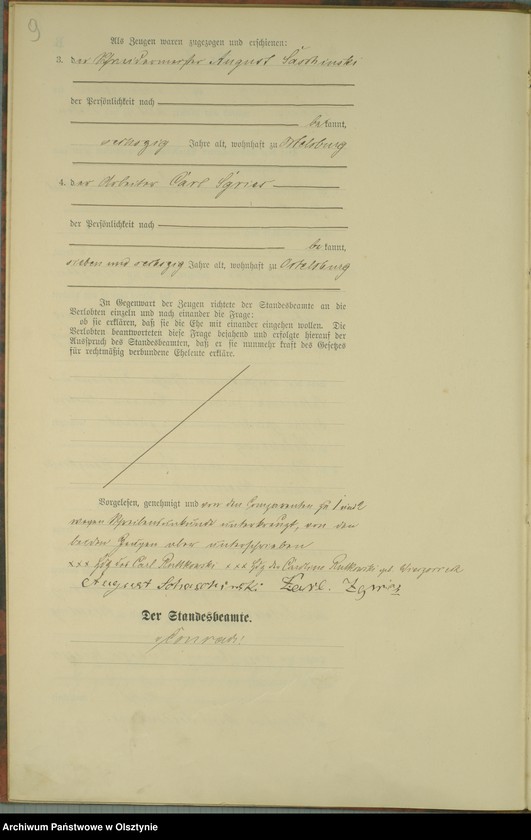 9
Als Zeugen waren zugezogen und erschienen:
3. der Schneidermeister August
der Persönlichkeit nach
bekannt,
sechszig Jahre alt, wohnhaft zu Ortelsburg
4. der Arbeiter Carl
der Persönlichkeit nach
bekannt,
sieben und sechszig Jahre alt, wohnhaft zu Ortelsburg
In Gegenwart der Zeugen richtete der Standesbeamte an die
Verlobten einzeln und nach einander die Frage:
ob sie erklären, daß sie die Ehe mit einander eingehen wollen. Die
Verlobten beantworteten diese Frage bejahend und erfolgte hierauf der
Ausspruch des Standesbeamten, daß er sie nunmehr kraft des Gesetzes
für rechtmäßig verbundene Eheleute erkläre.
Vorgelesen, genehmigt und von den Comparenten zu 1 und 2
wegen Schreibensunkunde unterkreuzt, von den
beiden Zeugen aber unterschrieben
xxx Hdz des Carl xxx Hdz der Caroline geb.
August Carl
Der Standesbeamte.
Conrad
Archiwum Państwowe w Olsztynie